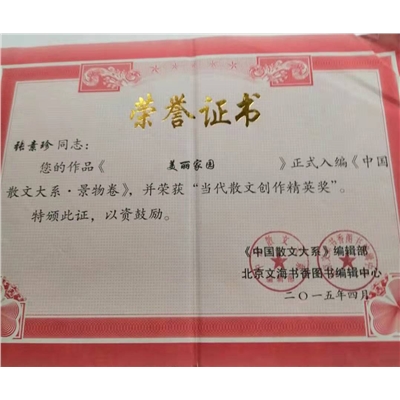 荣誉证书
张素珍同志：
您的作品《美丽家园》正式入编《中国
散文大系·景物卷》，并荣获“当代散文创作精英奖”。
特颁此证，以资鼓励。
《中国散文大系》编辑部
北京文海书香图书编辑中心
二〇一五年四月